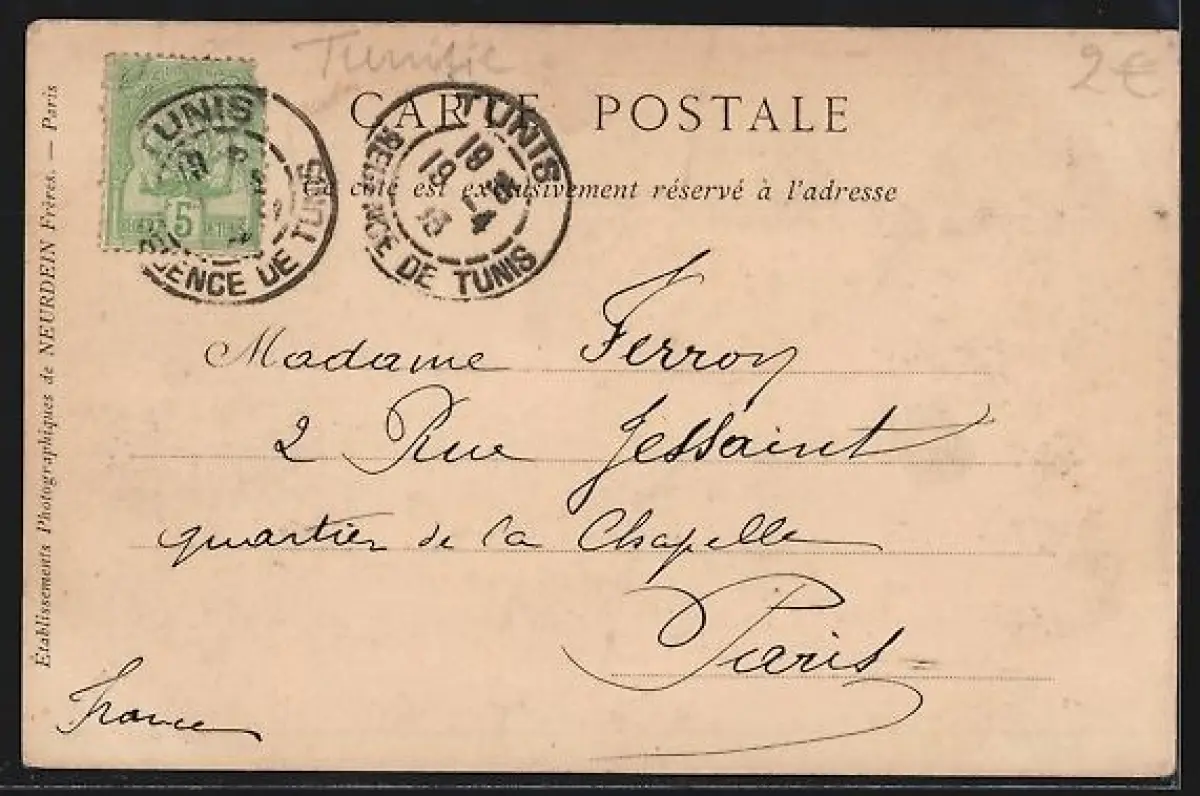 Tunisie
2€
CARTE POSTALE
Ce côté est exclusivement réservé à l'adresse
TUNIS
RÉGENCE DE TUNIS
5
TUNIS
19
4
RÉGENCE DE TUNIS
Madame Ferron
2 Rue Jessaint
quartier de la Chapelle
Paris
France
Établissements Photographiques de NEURDEIN Frères. — Paris